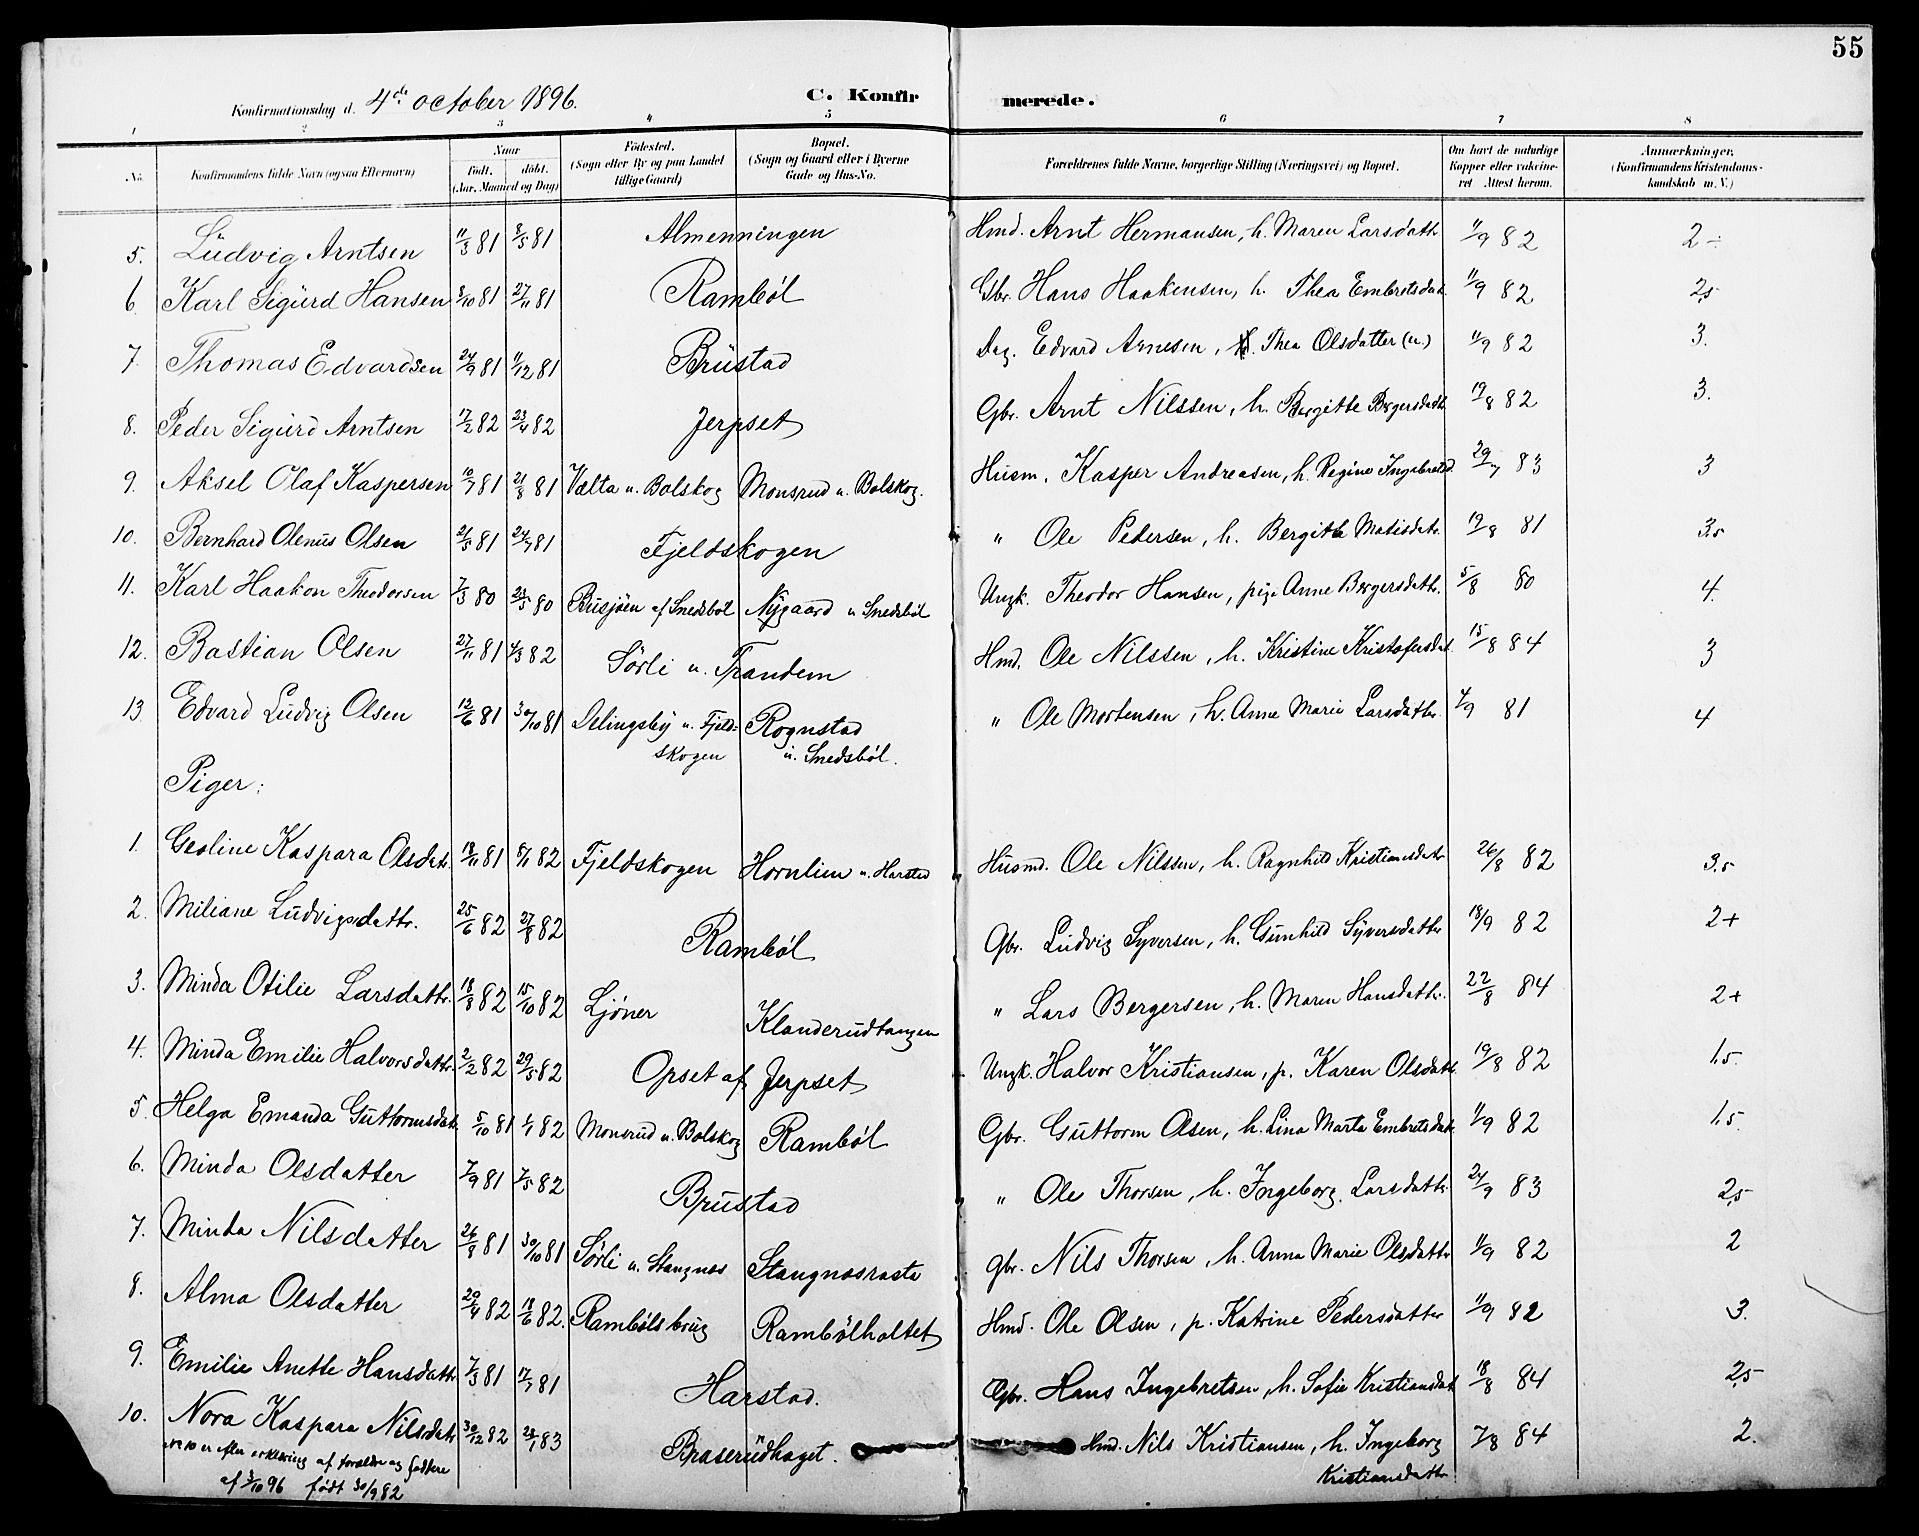 55
Konfirmationsdag d. 4de october 1896. C. Konfirmerede.
1 2 3 4 5 6 7 8
No. Konfirmandens fulde Navn (ogsaa Efternavn) Naar født. døbt. (Aar, Maaned og Dag) Fødested. (Sogn eller By og paa Landet tillige Gaard) Bopæl. (Sogn og Gaard eller i Byerne Gade og Hus-No. Forældrenes fulde Navne, borgerlige Stilling (Næringsvei) og Bopæl. Om havt de naturlige Kopper eller vaccineret Attest herom. Anmærkninger, (Konfirmandens Kristendomskundskab m. V.)
5. Ludvig Arntsen 11/3 81 8/5 81 Almenningen Hmd. Arnt Hermansen, h. Maren Larsdattr 11/9 82 2÷
6 Karl Sigurd Hansen 3/10 81 27/11 81 Rambøl Gbr. Hans Haakensen, h. Thea Embretsdat. 11/9 82 2,5
7. Thomas Edvardsen 24/9 81 11/12 81 Brustad Dag. Edvard Arnesen, Thea Olsdatter (u.) 11/9 82 3.
8. Peder Sigurd Arntsen 17/2 82 23/4 82 Jerpset Gbr. Arnt Nilssen, h. Bergitte Bergersdattr 19/8 82 3.
9. Aksel Olaf Kaspersen 10/7 81 21/8 81 Vælta u. Bolskog Monsrud u. Bolskog. Husm. Kasper Andreasen, h. Regine Ingebretsd. 29/7 83 3
10. Bernhard Olenus Olsen 21/5 81 24/7 81 Fjeldskogen " Ole Pedersen, h. Bergitte Matisdatr. 19/8 81 3.5
11. Karl Haakon Theodorsen 7/3 80 23/5 80 Busjøen af Snedsbøl Nygaard u Snedsbøl Ungk. Theodor Hansen, pige Anne Bergersdattr. 5/8 80 4.
12. Bastian Olsen 27/11 81 1/3 82 Sørli u. Trandem Hmd. Ole Nilssen, h. Kristine Kristofersdat. 15/8 84 3
13. Edvard Ludvig Olsen 12/6 81 30/10 81 Delingsby u. Fjeldskogen Rognstad u. Snedsbøl. " Ole Mortensen, h. Anne Marie Larsdatter. 4/9 81 4
Piger:
1. Geoline Kaspara Olsdatr. 18/11 81 8/1 82 Fjeldskogen Hornlien u. Harstad Husmd. Ole Nilssen, h. Ragnhild Kristiansdatr 26/8 82 3.5
2. Miliane Ludvigsdattr. 25/6 82 27/8 82 Rambøl Gbr. Ludvig Syversen, h. Gunhild Syversdatter 18/9 82 2+
3. Minda Otilie Larsdattr. 18/8 82 15/10 82 Ljøner Klanderudtangen " Lars Bergersen, h. Maren Hansdattr. 22/8 84 2+
4. Minda Emilie Halvorsdattr. 2/2 82 29/5 82 Opset af Jerpset Ungk. Halvor Kristiansen, p. Karen Olsdattr 19/8 82 1.5
5. Helga Emanda Guttormsdatr. 5/10 81 1/1 82 Monsrud u. Bolskog Rambøl Gbr. Guttorm Olsen, h. Lina Marta Embretsdat 11/9 82 1.5
6. Minda Olsdatter 7/9 81 7/5 82 Brustad " Ole Thorsen, h. Ingeborg Larsdattr. 24/9 83 2,5
7. Minda Nilsdatter 26/8 81 30/10 81 Sørli u. Stangnes Stangnesrasta gbr. Nils Thorsen, h. Anna Marie Olsdattr 11/9 82 2
8. Alma Olsdatter 29/4 82 18/6 82. Rambølsbrug Rambølholtet Hmd. Ole Olsen, p. Katrine Pedersdatter 11/9 82 3.
9. Emilie Anette Hansdattr 7/3 81 17/7 81 Harstad. Gbr. Hans Ingebretsen, h. Sofie Kristiansdat 18/8 84 2,5
10. Nora Kaspara Nilsdatr 30/12 82 28/1 83 Braserudhaget. Hmd. Nils Kristiansen, h. Ingeborg Kristiansdattr. 7/8 84 2.
No 10 er efter erklæring af forældre og faddere
af 3/10 96 født 30/9 82